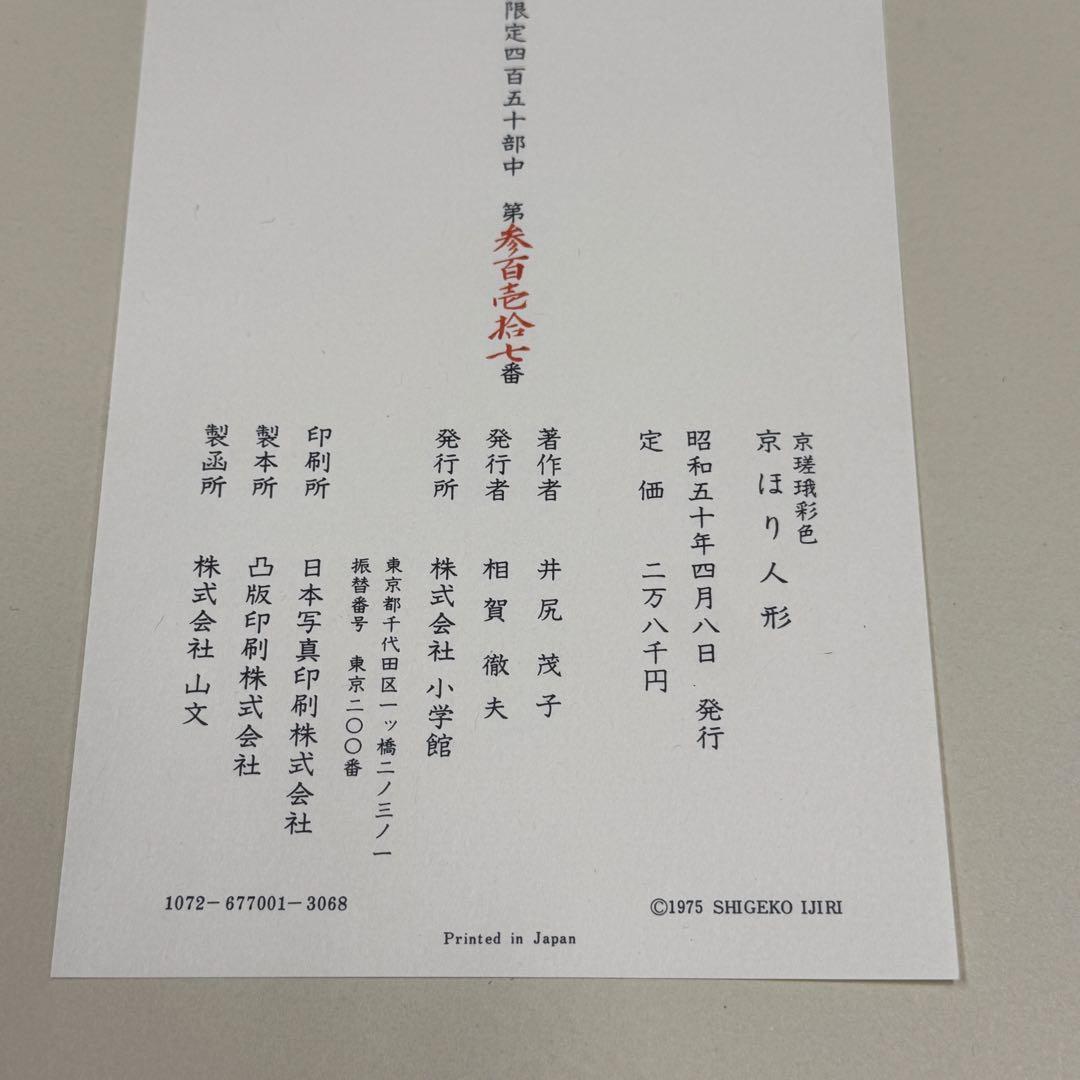 限定四百五十部中　第参百壱拾七番
京瑳珴彩色
京ほり人形
昭和五十年四月八日　発行
定価　二万八千円
著作者　井尻茂子
発行者　相賀徹夫
発行所　株式会社 小学館
東京都千代田区一ッ橋二ノ三ノ一
振替番号　東京二〇〇番
印刷所　日本写真印刷株式会社
製本所　凸版印刷株式会社
製函所　株式会社 山文
1072-677001-3068
©1975 SHIGEKO IJIRI
Printed in Japan